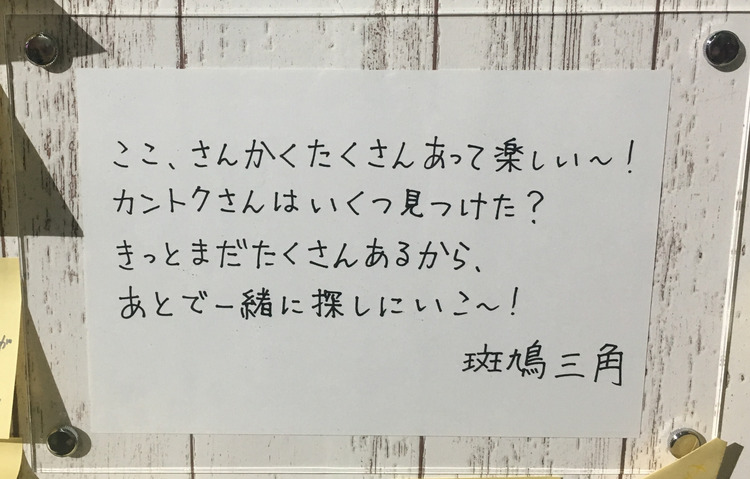 ここ、さんかくたくさんあって楽しい〜！
カントクさんはいくつ見つけた？
きっとまだたくさんあるから、
あとで一緒に探しにいこ〜！
斑鳩三角